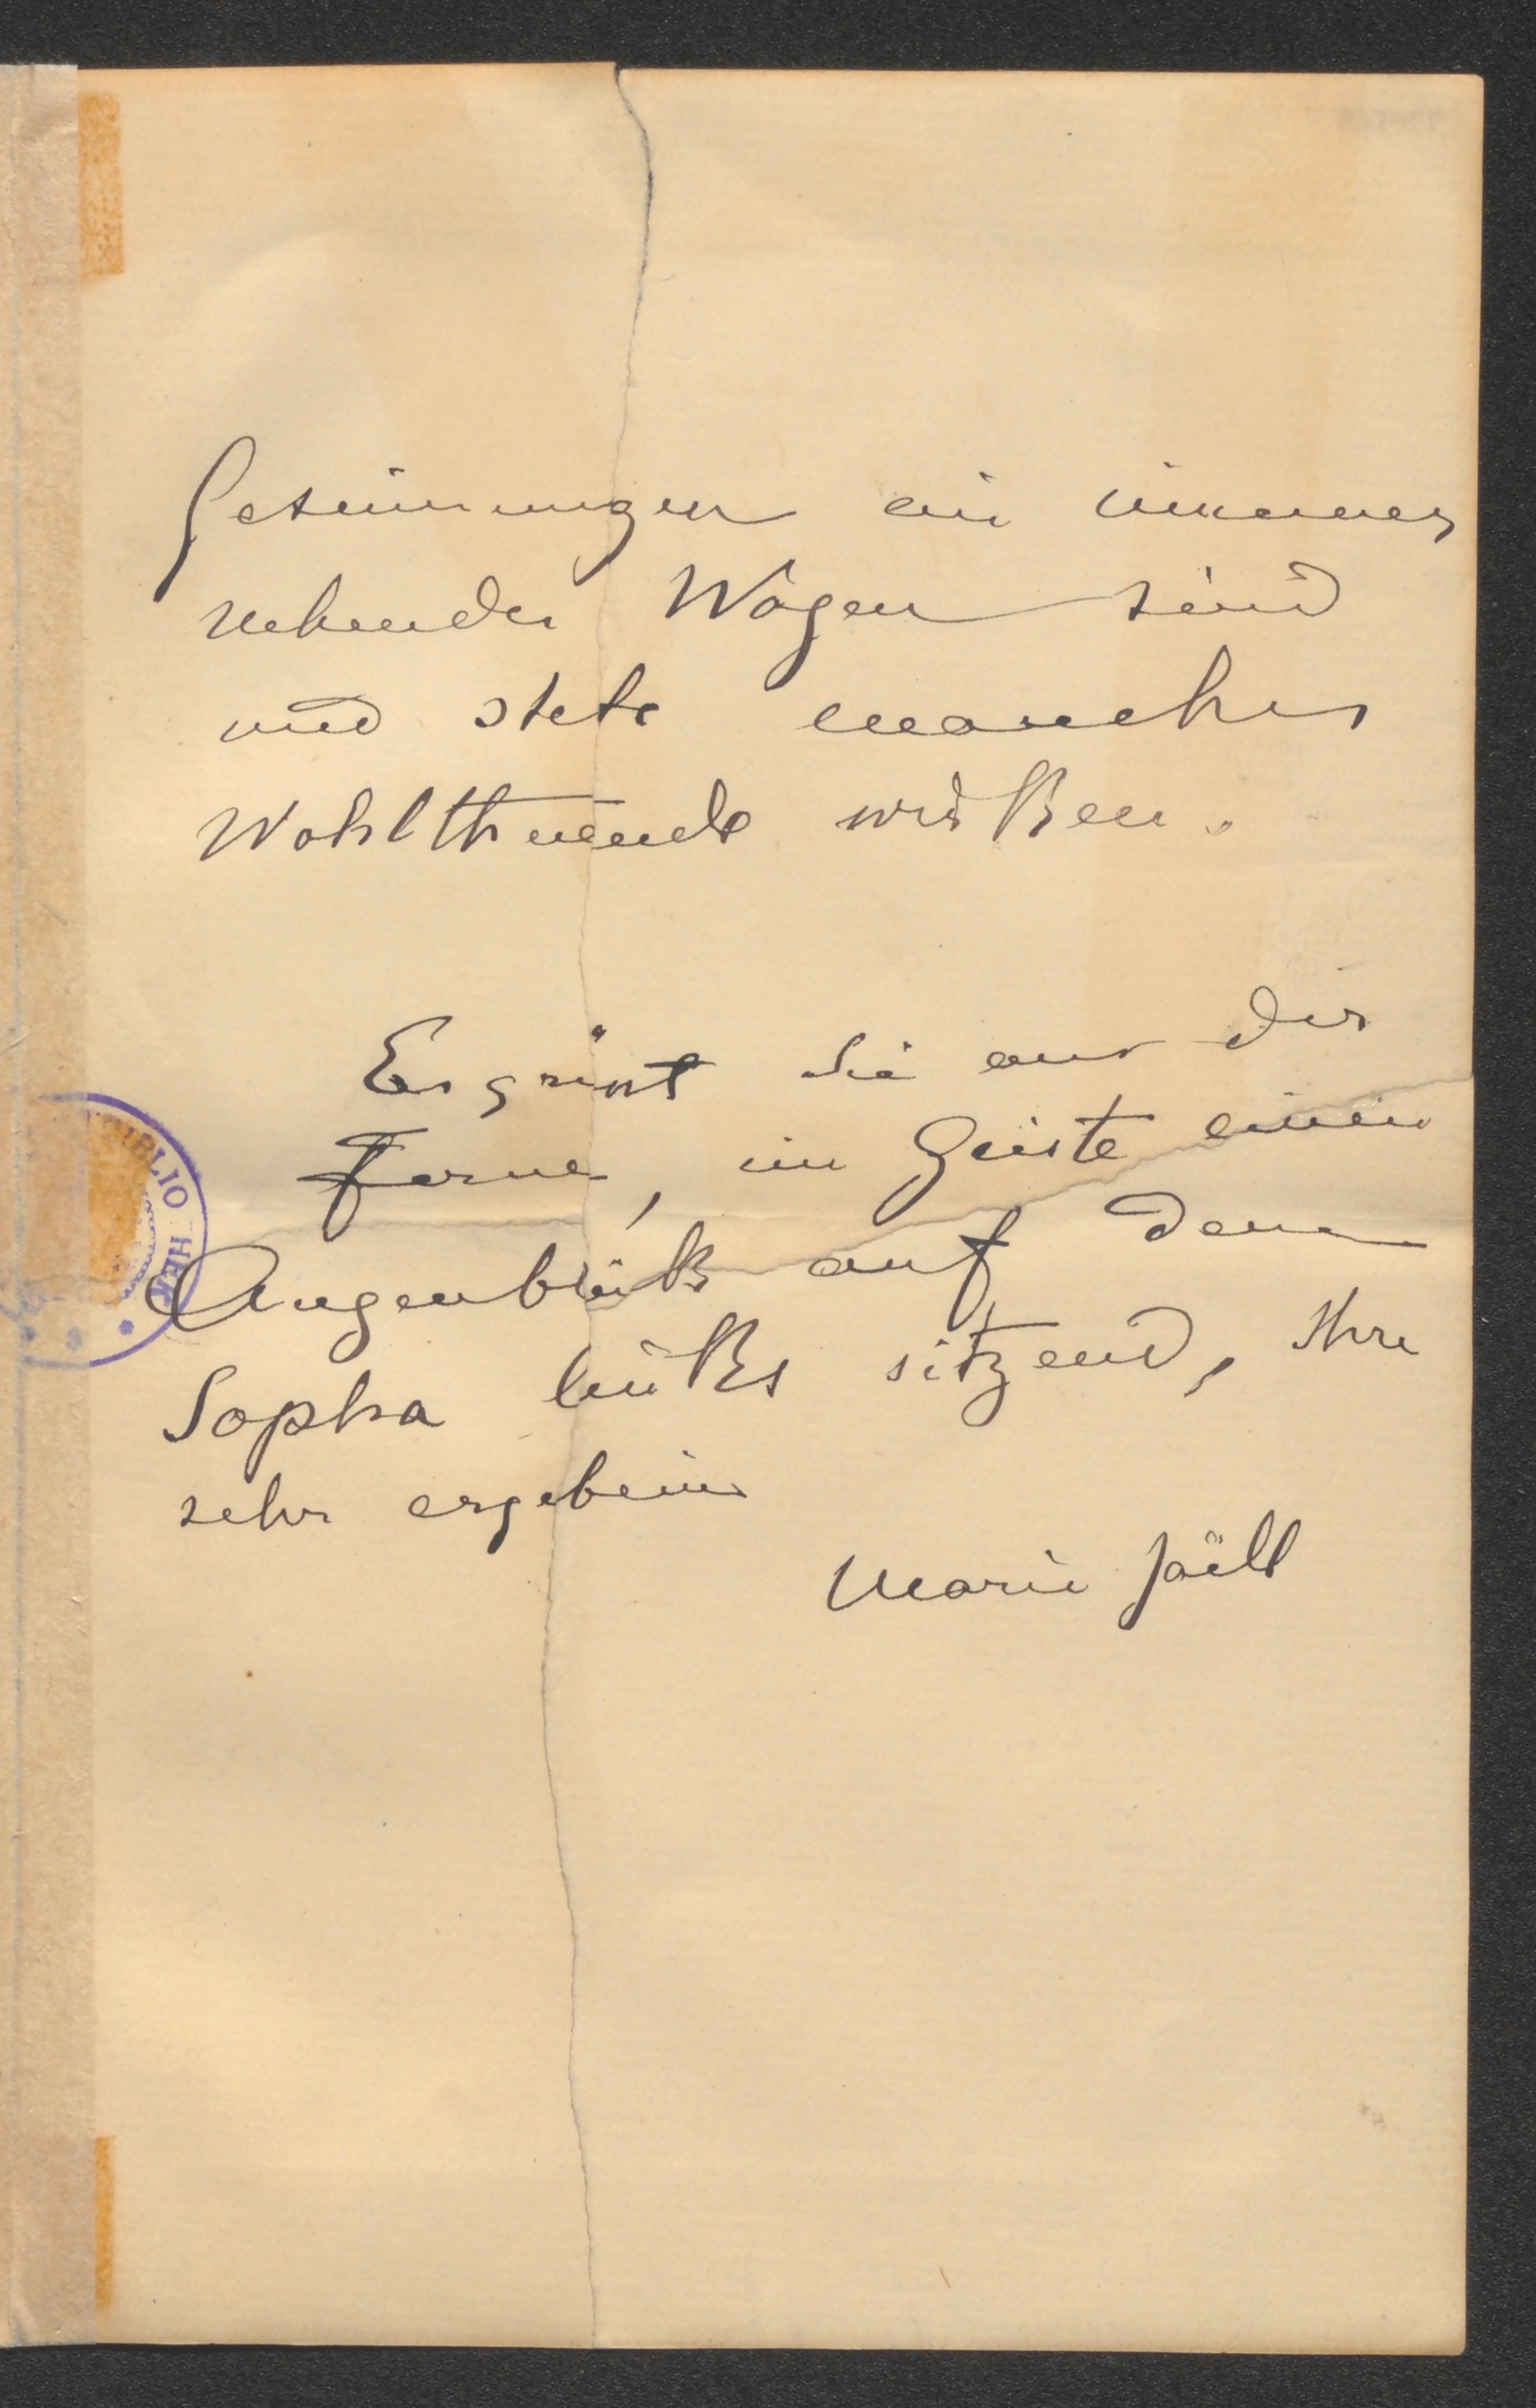 Gesinnungen ein immer
Wogen sind
und stets manches
Wohlthuende wirken.
Es grüsst Sie aus der
Ferne, im Geiste einen
Augenblick auf dem
Sopha links sitzend, Ihre
sehr ergebene
Marie Jaëll
BIBLIOTHEK